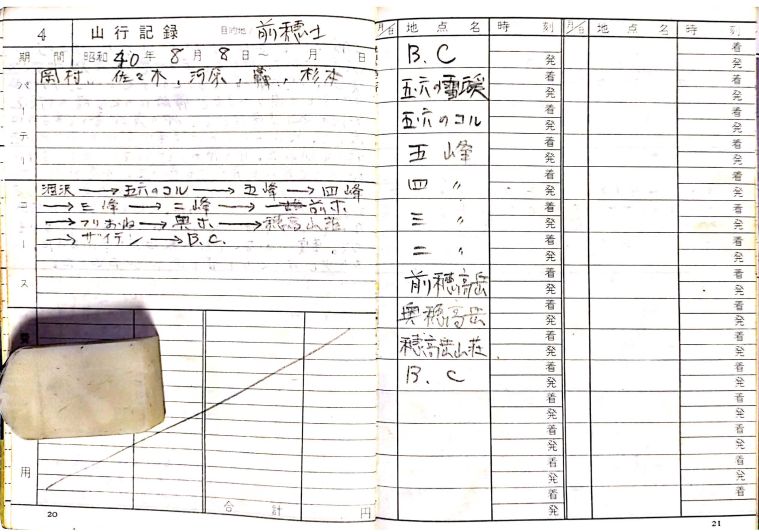 4 山行記録 目的地 前穂
期間 昭和40年8月8日～ 月 日
岡村、佐々木、河原、 、杉本
パーティー
涸沢→五六のコル→五峰→四峰
→三峰→二峰→前ホ
→つりおね→奥ホ→穂高山荘
→ザイテン→B.C.
コース
費用
合計 円
20
月/日 地点名 時刻 月/日 地点名 時刻
B.C 着 発 着 発
五・六の雪渓 着 発 着 発
五・六のコル 着 発 着 発
五峰 着 発 着 発
四 〃 着 発 着 発
三 〃 着 発 着 発
二 〃 着 発 着 発
前穂高岳 着 発 着 発
奥穂高岳 着 発 着 発
穂高岳山荘 着 発 着 発
B.C 着 発 着 発
着 発 着 発
着 発 着 発
着 発 着 発
着 発 着
21